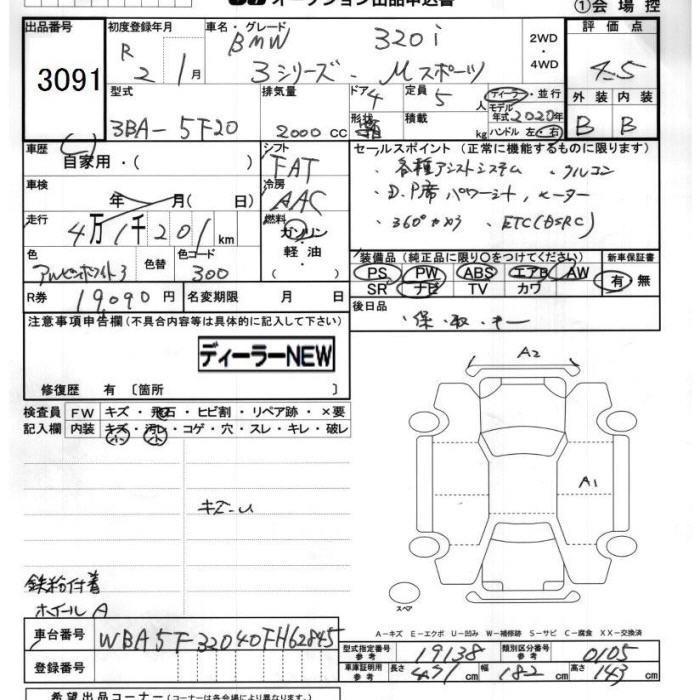 オークション出品申込書 ①会場控
出品番号 初度登録年月 車名・グレード 評価点
3091 R 2 1月 BMW 320i 2WD・4WD 4.5
3シリーズ・Mスポーツ
型式 排気量 ドア 定員 ディーラー・並行 外装 内装
3BA-5F20 2000cc 4 5人 モデル年式2020年 B B
形状 積載 kg ハンドル 左・右
車歴 シフト セールスポイント (正常に機能するものに限ります)
自家用・( ) FAT ・各種アシストシステム ・クルコン
車検 冷房 ・D.P席パワーシート, ヒーター
年 月(日) AAC ・360°カメラ ・ETC(DSRC)
走行 4万1千201km 燃料 ガソリン・軽油
色 色替 色コード 装備品 (純正品に限り○をつけてください) 新車保証書
アルピンホワイト3 300 PS PW ABS エアB AW 有・無
SR ナビ TV カワ
R券 19,090円 名変期限 月 日 後日品
・保・取・キー
注意事項申告欄 (不具合内容等は具体的に記入して下さい)
ディーラーNEW
修復歴 有 〔箇所 〕
A2
検査員 FW キズ・飛石・ヒビ割・リペア跡・×要
記入欄 内装 キズ・汚レ・コゲ・穴・スレ・キレ・破レ
小 小
A1
鉄粉付着
ホイールA
スペア
A-キズ E-エクボ U-凹み W-補修跡 S-サビ C-腐食 XX-交換済
車台番号 WBA5F32040FH62845
型式指定番号 参考 19138 類別区分番号 参考 0105
登録番号 車庫証明用 参考 長さ 471cm 幅 182cm 高さ 143cm
希望出品コーナー (コーナーは各会場により異なります。)